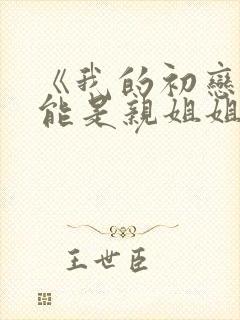 《我的初戀
能是親姐姐
王世臣